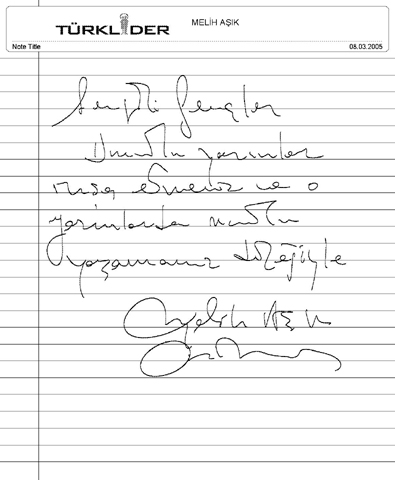 TÜRKLİDER
MELİH AŞIK
Note Title
08.03.2005
Sevgili Gençler
Umutlu yarınlar
inşa etmeniz ve o
yarınlarda mutlu
yaşamanız dileğiyle
Melih AŞIK